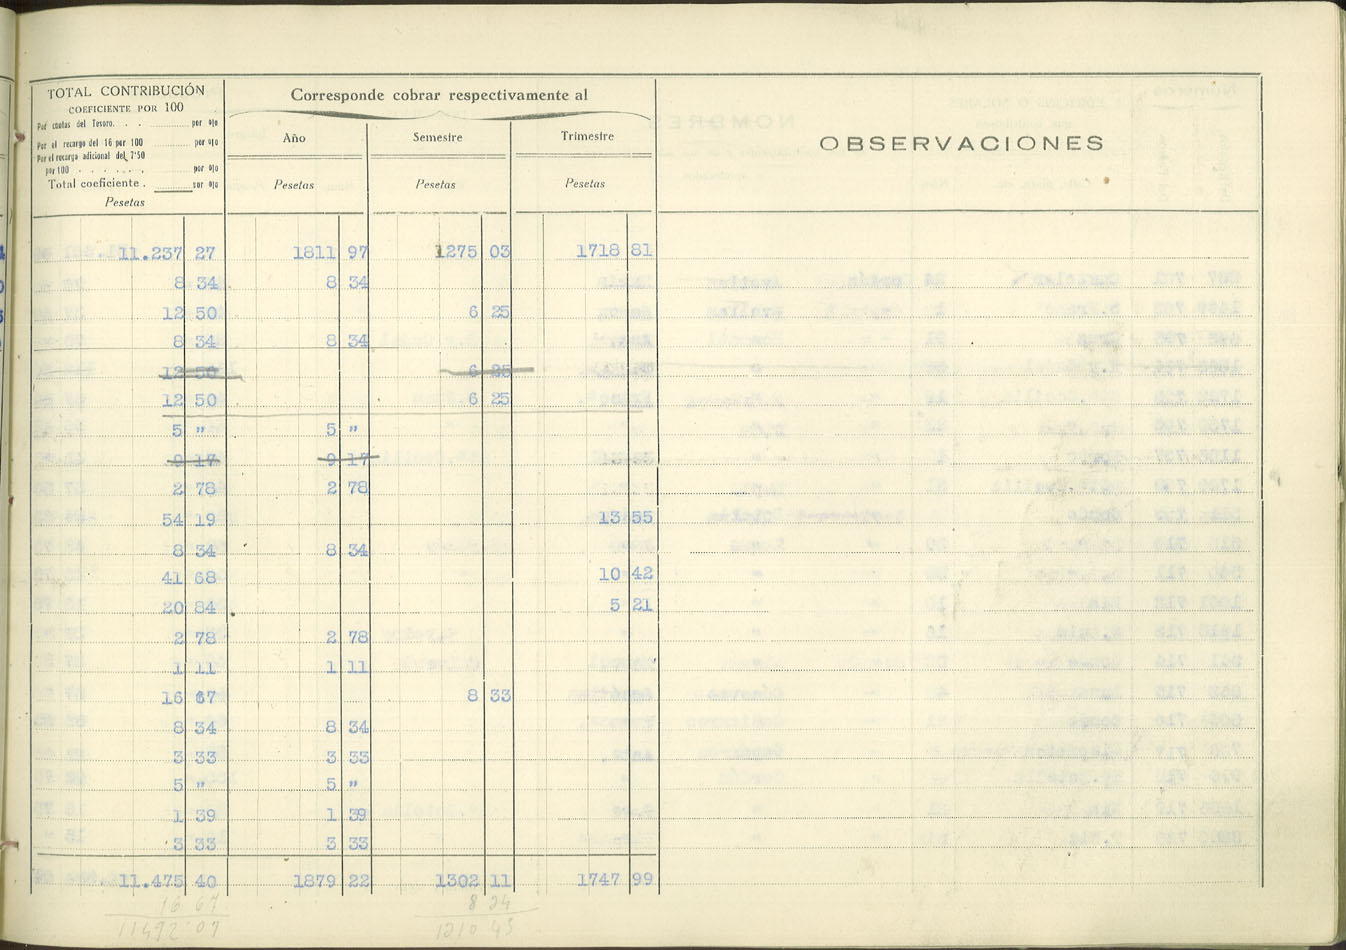 TOTAL CONTRIBUCIÓN
COEFICIENTE POR 100
Por cuotas del Tesoro. . . por %
Por el recargo del 16 por 100 por %
Por el recargo adicional del 7'50
por 100 . . . . . . por %
Total coeficiente . por %
Pesetas
Corresponde cobrar respectivamente al
Año Semestre Trimestre
Pesetas Pesetas Pesetas
OBSERVACIONES
11.237 27 1811 97 1275 03 1718 81
8 34 8 34
12 50 6 25
8 34 8 34
12 50 6 25
12 50 6 25
5 " 5 "
9 17 9 17
2 78 2 78
54 19 13 55
8 34 8 34
41 68 10 42
20 84 5 21
2 78 2 78
1 11 1 11
16 67 8 33
8 34 8 34
3 33 3 33
5 " 5 "
1 39 1 39
3 33 3 33
11.475 40 1879 22 1302 11 1747 99
16 67 8 34
11492 07 1310 45